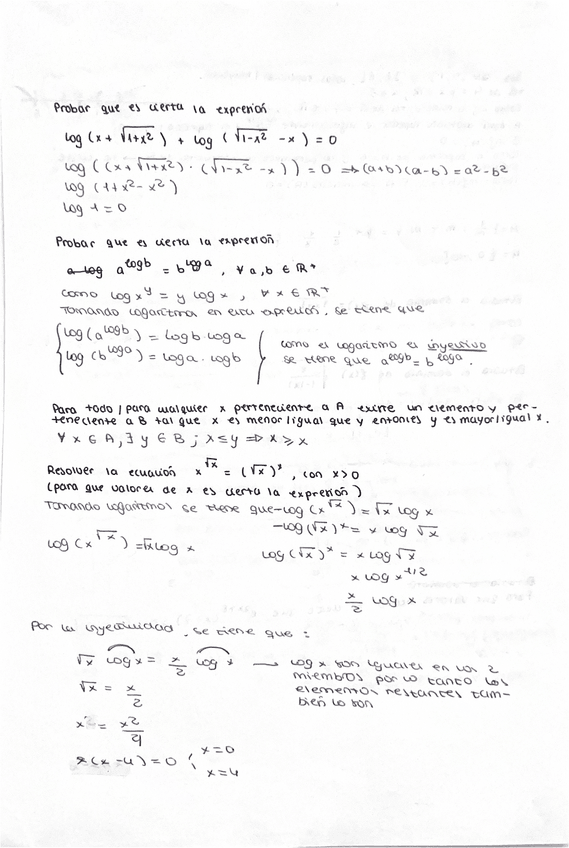 Probar que es cierta la expresión
log (x + √1+x²) + log (√1-x² - x) = 0
log ((x + √1+x²) · (√1-x² - x)) = 0 ⇒ (a+b)(a-b) = a² - b²
log (1+x² - x²)
log 1 = 0
Probar que es cierta la expresión
a^logb = b^loga, ∀ a,b ∈ ℝ⁺
como log x^y = y log x, ∀ x ∈ ℝ⁺
Tomando logaritmos en esta expresión, se tiene que
log (a^logb) = logb · loga
log (b^loga) = loga · logb
como el logaritmo es inyectivo
se tiene que a^logb = b^loga.
Para todo / para cualquier x perteneciente a A existe un elemento y per-
teneciente a B tal que x es menor/igual que y entonces y es mayor/igual x.
∀ x ∈ A, ∃ y ∈ B ; x ≤ y ⇒ x ≥ x
Resolver la ecuación x^√x = (√x)^x, con x>0
(para que valores de x es cierta la expresión)
Tomando logaritmos se tiene que - log (x^√x) = √x log x
- log (√x)^x = x log √x
log (x^√x) = √x log x
log (√x)^x = x log √x
x log x^1/2
x/2 log x
Por la inyectividad, se tiene que:
√x log x = x/2 log x → log x son iguales en los 2
miembros por lo tanto los
elementos restantes tam-
bién lo son
√x = x/2
x = x²/4
x(x-4) = 0
x=0
x=4